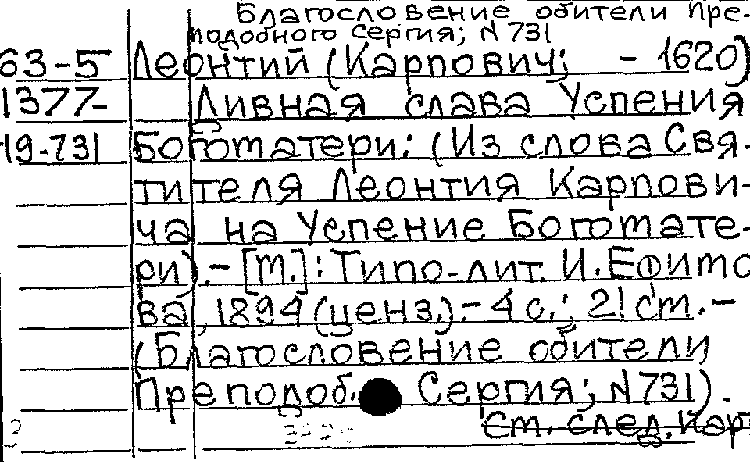 Благословение обители Пре-
подобного Сергия; N 731
63-5 Леонтий (Карпович; - 1620)
1377- Дивная слава Успения
19-731 Богоматери: (Из слова Свя-
тителя Леонтия Карпови-
ча на Успение Богомате-
ри).- [М.]: Типо-лит. И. Ефимо
ва, 1894 (ценз.).- 4 с.; 21 см.-
(Благословение обители
Преподоб. Сергия; N 731).
См. след. кар